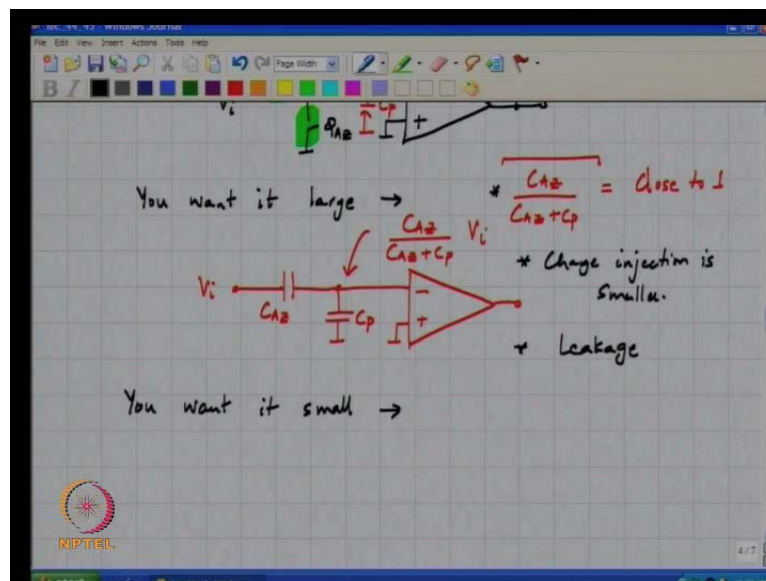 lec_44_45 - Windows Journal
File Edit View Insert Actions Tools Help
Page Width
B I
Vi
φAZ
CP
+
You want it large →
* CAZ / (CAZ + CP) = Close to 1
CAZ / (CAZ + CP) Vi
* Charge injection is
smaller.
Vi
CAZ
CP
-
+
* Leakage
You want it small →
NPTEL
4/7